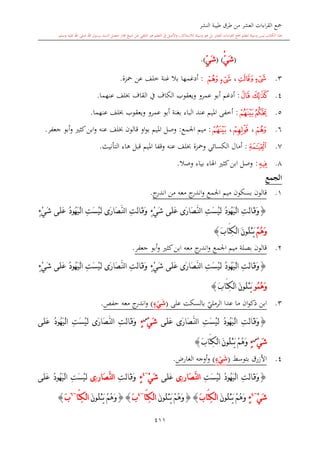 جمع القراءات العشر من طرق طيبة النشر
(شَيْءٌ) (شَيْءٍ).
٣. شَيْءٍ وَقَالَتِ ، شَيْءٍ وَهُمْ : أدغمها بلا غنة خلف عن حمزة.
٤. كَذَٰلِكَ قَالَ : أدغم أبو عمرو ويعقوب الكاف في القاف بخلف عنهما.
٥. يَحْكُمُ بَيْنَهُمْ : أخفى الميم عند الباء بغنة أبو عمرو ويعقوب بخلف عنهما.
٦. وَهُمْ ، قَوْلِهِمْ ، بَيْنَهُمْ : ميم الجمع: وصل الميم بواو قالون بخلف عنه وابن كثير وأبو جعفر.
٧. ٱلْقِيَٰمَةِ : أمال الكسائي وحمزة بخلف عنه وقفا الميم قبل هاء التأنيث.
٨. فِيهِ : وصل ابن كثير الهاء بياء وصلا.
الجمع
١. قالون بسكون ميم الجمع واندرج معه من اندرج.
﴿ وَقَالَتِ الْيَهُودُ لَيْسَتِ النَّصَارَى عَلَى شَيْءٍ وَقَالَتِ النَّصَارَى لَيْسَتِ الْيَهُودُ عَلَى شَيْءٍ
وَهُمْ يَتْلُونَ الْكِتَابَ ﴾
٢. قالون بصلة ميم الجمع واندرج معه ابن كثير وأبو جعفر.
﴿ وَقَالَتِ الْيَهُودُ لَيْسَتِ النَّصَارَى عَلَى شَيْءٍ وَقَالَتِ النَّصَارَى لَيْسَتِ الْيَهُودُ عَلَى شَيْءٍ
وَهُمُو يَتْلُونَ الْكِتَابَ ﴾
٣. ابن ذكوان ما عدا الرملي بالسكت على (شَيْءٍ) واندرج معه حفص.
﴿ وَقَالَتِ الْيَهُودُ لَيْسَتِ النَّصَارَى عَلَى شَيْءٍ وَقَالَتِ النَّصَارَى لَيْسَتِ الْيَهُودُ عَلَى
شَيْءٍ وَهُمْ يَتْلُونَ الْكِتَابَ ﴾
٤. الأزرق بتوسط (شَيْءٍ) وأوجه العارض.
﴿ وَقَالَتِ الْيَهُودُ لَيْسَتِ النَّصَارى عَلَى شَيْءٍ وَقَالَتِ النَّصَارى لَيْسَتِ الْيَهُودُ عَلَى
شَيْءٍ وَهُمْ يَتْلُونَ الْكِتَابَ ﴾ ﴿ وَهُمْ يَتْلُونَ الْكِتَابَ ﴾ ﴿ وَهُمْ يَتْلُونَ الْكِتَابَ ﴾
٤١١